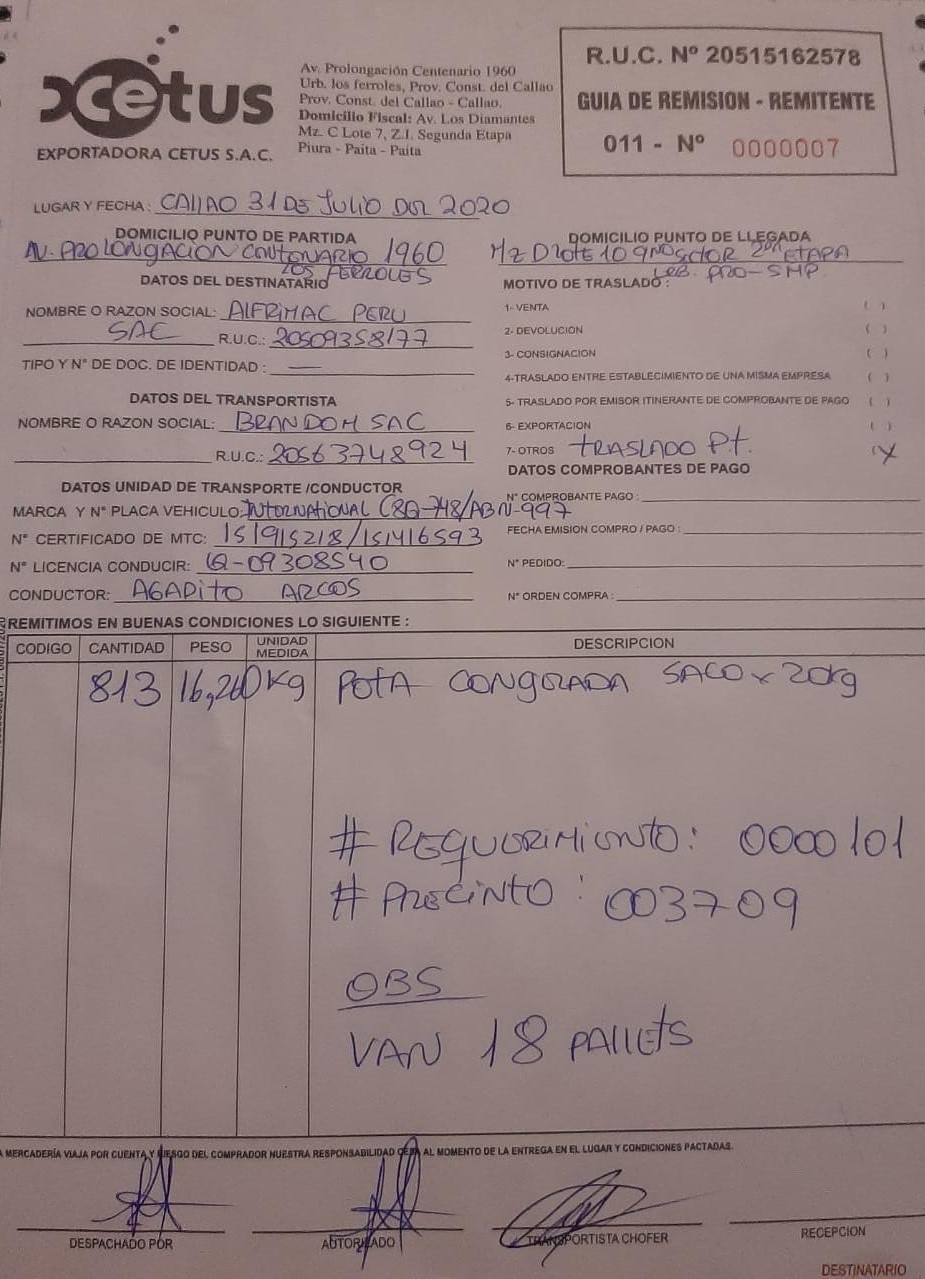 cetus
EXPORTADORA CETUS S.A.C.
Av. Prolongación Centenario 1960
Urb. los ferroles, Prov. Const. del Callao
Prov. Const. del Callao - Callao.
Domicilio Fiscal: Av. Los Diamantes
Mz. C Lote 7, Z.I. Segunda Etapa
Piura - Paita - Paita
R.U.C. Nº 20515162578
GUIA DE REMISION - REMITENTE
011 - Nº 0000007
LUGAR Y FECHA: CALLAO 31 DE JULIO DEL 2020
DOMICILIO PUNTO DE PARTIDA
AV. PROLONGACION CENTENARIO 1960
LOS FERROLES
DOMICILIO PUNTO DE LLEGADA
MZ D LOTE 10 9NO SCTOR 2DA ETAPA
URB. PRO-SMP
DATOS DEL DESTINATARIO
NOMBRE O RAZON SOCIAL: ALFRIMAC PERU
SAC R.U.C.: 20509358177
TIPO Y N° DE DOC. DE IDENTIDAD : —
DATOS DEL TRANSPORTISTA
NOMBRE O RAZON SOCIAL: BRANDOM SAC
R.U.C.: 20563748924
DATOS UNIDAD DE TRANSPORTE /CONDUCTOR
MARCA Y N° PLACA VEHICULO: INTERNATIONAL C8Q-748/ABN-997
N° CERTIFICADO DE MTC: 151915218/151416593
N° LICENCIA CONDUCIR: Q-09308540
CONDUCTOR: AGAPITO ARCOS
MOTIVO DE TRASLADO :
1- VENTA ( )
2- DEVOLUCION ( )
3- CONSIGNACION ( )
4-TRASLADO ENTRE ESTABLECIMIENTO DE UNA MISMA EMPRESA ( )
5- TRASLADO POR EMISOR ITINERANTE DE COMPROBANTE DE PAGO ( )
6- EXPORTACION ( )
7- OTROS TRASLADO P.t. (X
DATOS COMPROBANTES DE PAGO
N° COMPROBANTE PAGO :
FECHA EMISION COMPRO / PAGO :
N° PEDIDO:
N° ORDEN COMPRA :
REMITIMOS EN BUENAS CONDICIONES LO SIGUIENTE :
CODIGO CANTIDAD PESO UNIDAD MEDIDA DESCRIPCION
813 16,260 Kg POTA CONGELADA SACO x 20kg
# REQUERIMIENTO: 0000101
# PRECINTO : 003709
OBS
VAN 18 PALLETS
A MERCADERÍA VIAJA POR CUENTA Y RIESGO DEL COMPRADOR NUESTRA RESPONSABILIDAD CESA AL MOMENTO DE LA ENTREGA EN EL LUGAR Y CONDICIONES PACTADAS.
DESPACHADO POR
AUTORIZADO
TRANSPORTISTA CHOFER
RECEPCION
DESTINATARIO